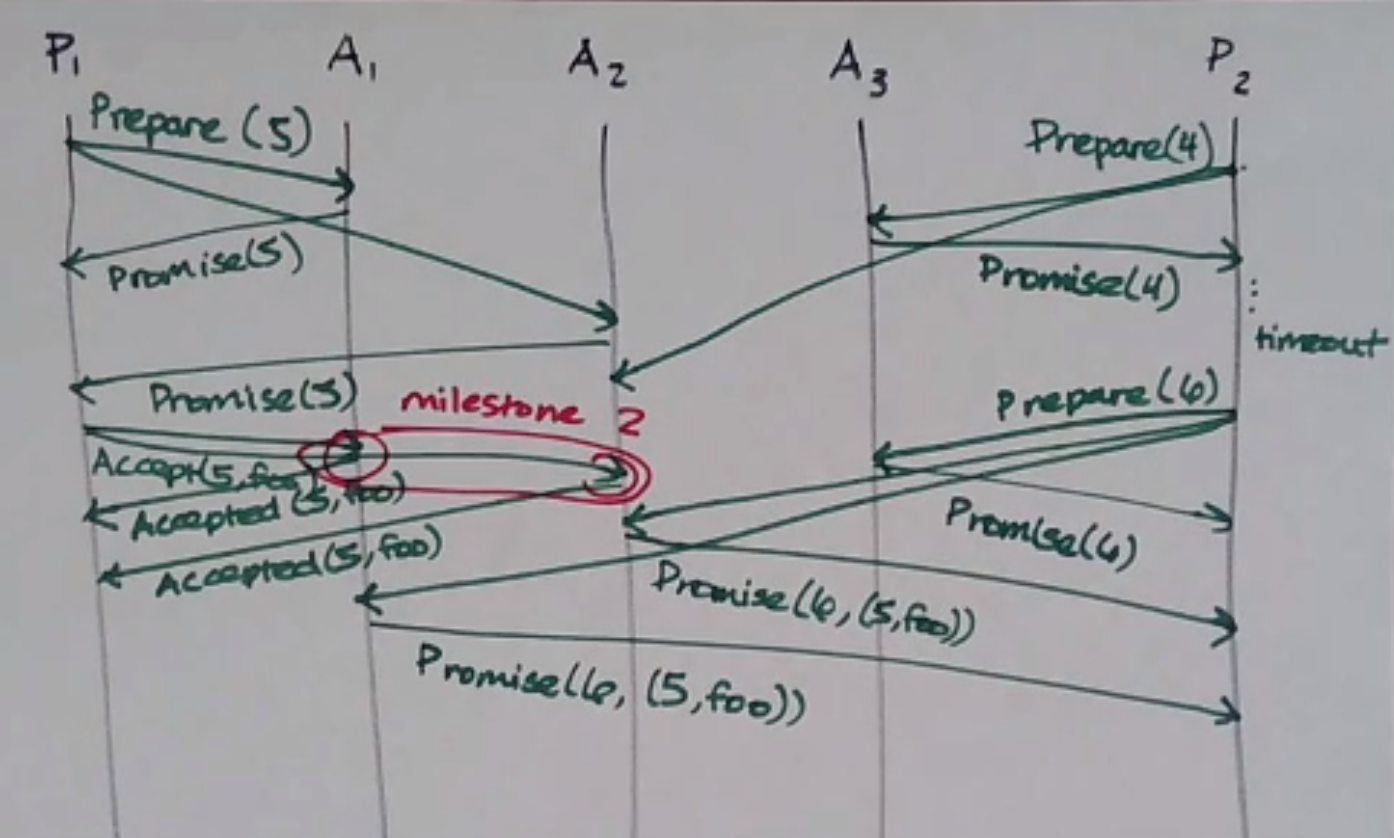 P1 A1 A2 A3 P2
Prepare (5)
Prepare(4)
Promise(5)
Promise(4)
timeout
Promise(5)
milestone 2
Prepare (6)
Accept(5, foo)
Accepted (5, foo)
Promise(6)
Accepted (5, foo)
Promise(6, (5, foo))
Promise(6, (5, foo))